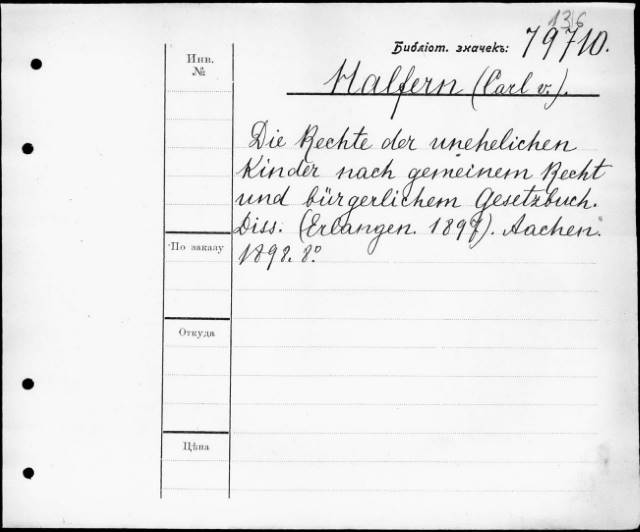 136
Библіот. значекъ: 79710.
Инв.
№
Halfern (Carl v.).
Die Rechte der unehelichen
Kinder nach gemeinem Recht
und bürgerlichem Gesetzbuch.
Diss. (Erlangen. 1897). Aachen.
1898. 8°
По заказу
Откуда
Цѣна